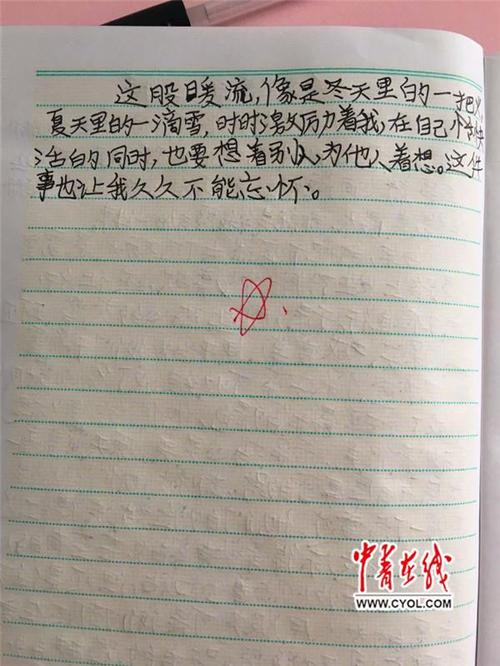 这股暖流，像是冬天里的一把火
夏天里的一滴雪，时时激励着我，在自己快
活的同时，也要想着别人，为他人着想。这件
事也让我久久不能忘怀。
中青在线
WWW.CYOL.COM